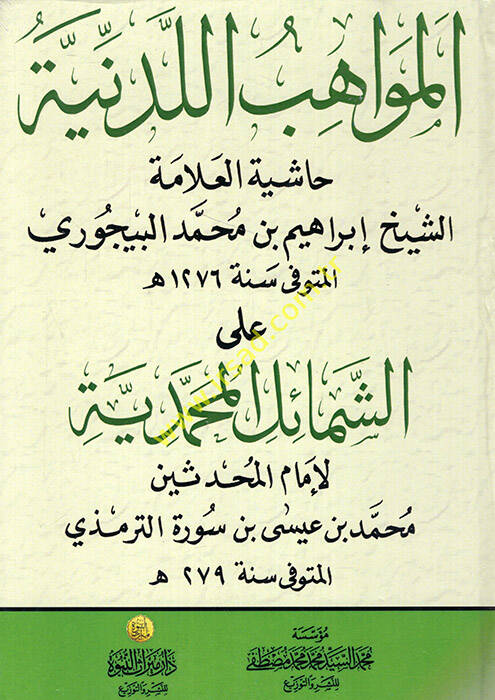 المَوَاهِبُ اللَّدُنِّيَّةُ
حاشية العلامة
الشيخ إبراهيم بن محمّد البيجوري
المتوفى سنة ١٢٧٦ هـ
على
الشَّمَائِلِ المُحَمَّدِيَّةِ
لإمام المحدثين
محمّد بن عيسى بن سورة الترمذي
المتوفى سنة ٢٧٩ هـ
مؤسسة
محمد السيد محمد محمد مصطفى
للنشر والتوزيع
دار ميراث النبوة
للنشر والتوزيع